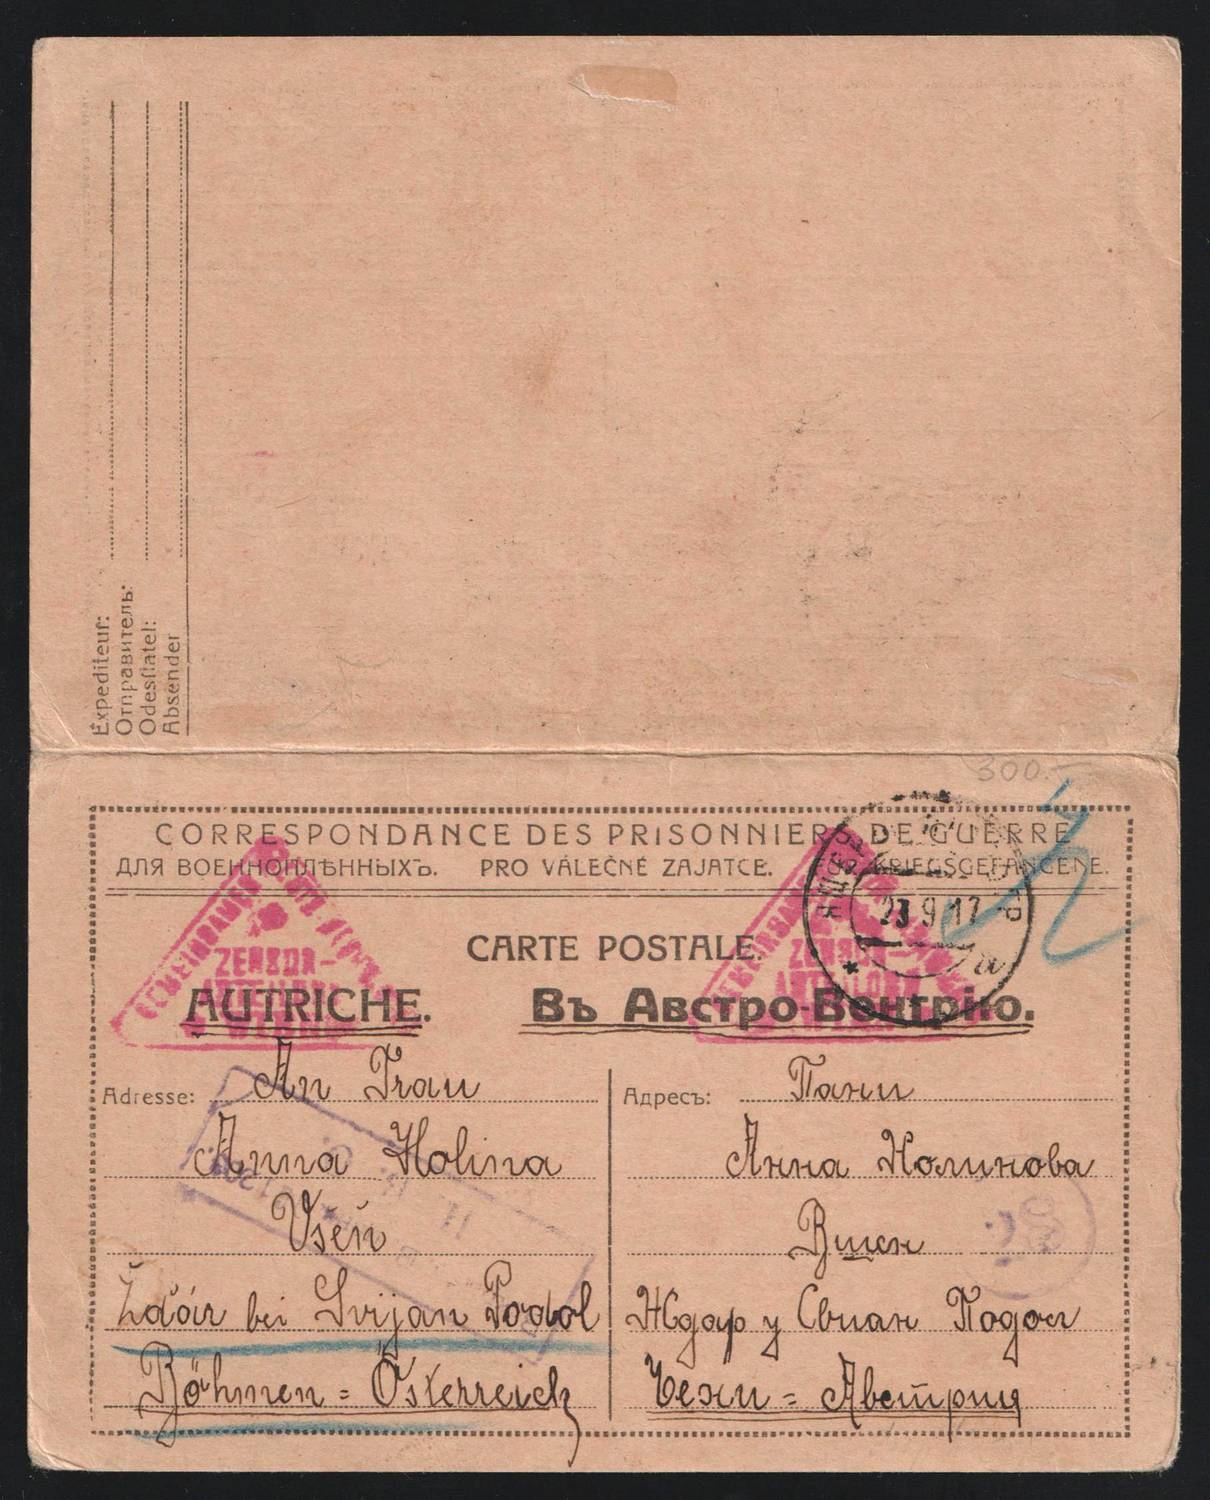 Expéditeur:
Отправитель:
Odesílatel:
Absender
300.-
CORRESPONDANCE DES PRISONNIERS DE GUERRE
ДЛЯ ВОЕННОПЛѢННЫХЪ. PRO VÁLEČNÉ ZAJATCE. FÜR KRIEGSGEFANGENE.
23 9 17
CARTE POSTALE.
ZENSOR-
ZENSOR-
AUTRICHE. Въ Австро-Венгрію.
Adresse: An Frau
Anna Holina
Všeň
Žďár bei Svijan Podol
Böhmen = Österreich
Адресъ: Пани
Анна Холинова
Вшен
Ждар у Свиан Подол
Чехи = Австрия